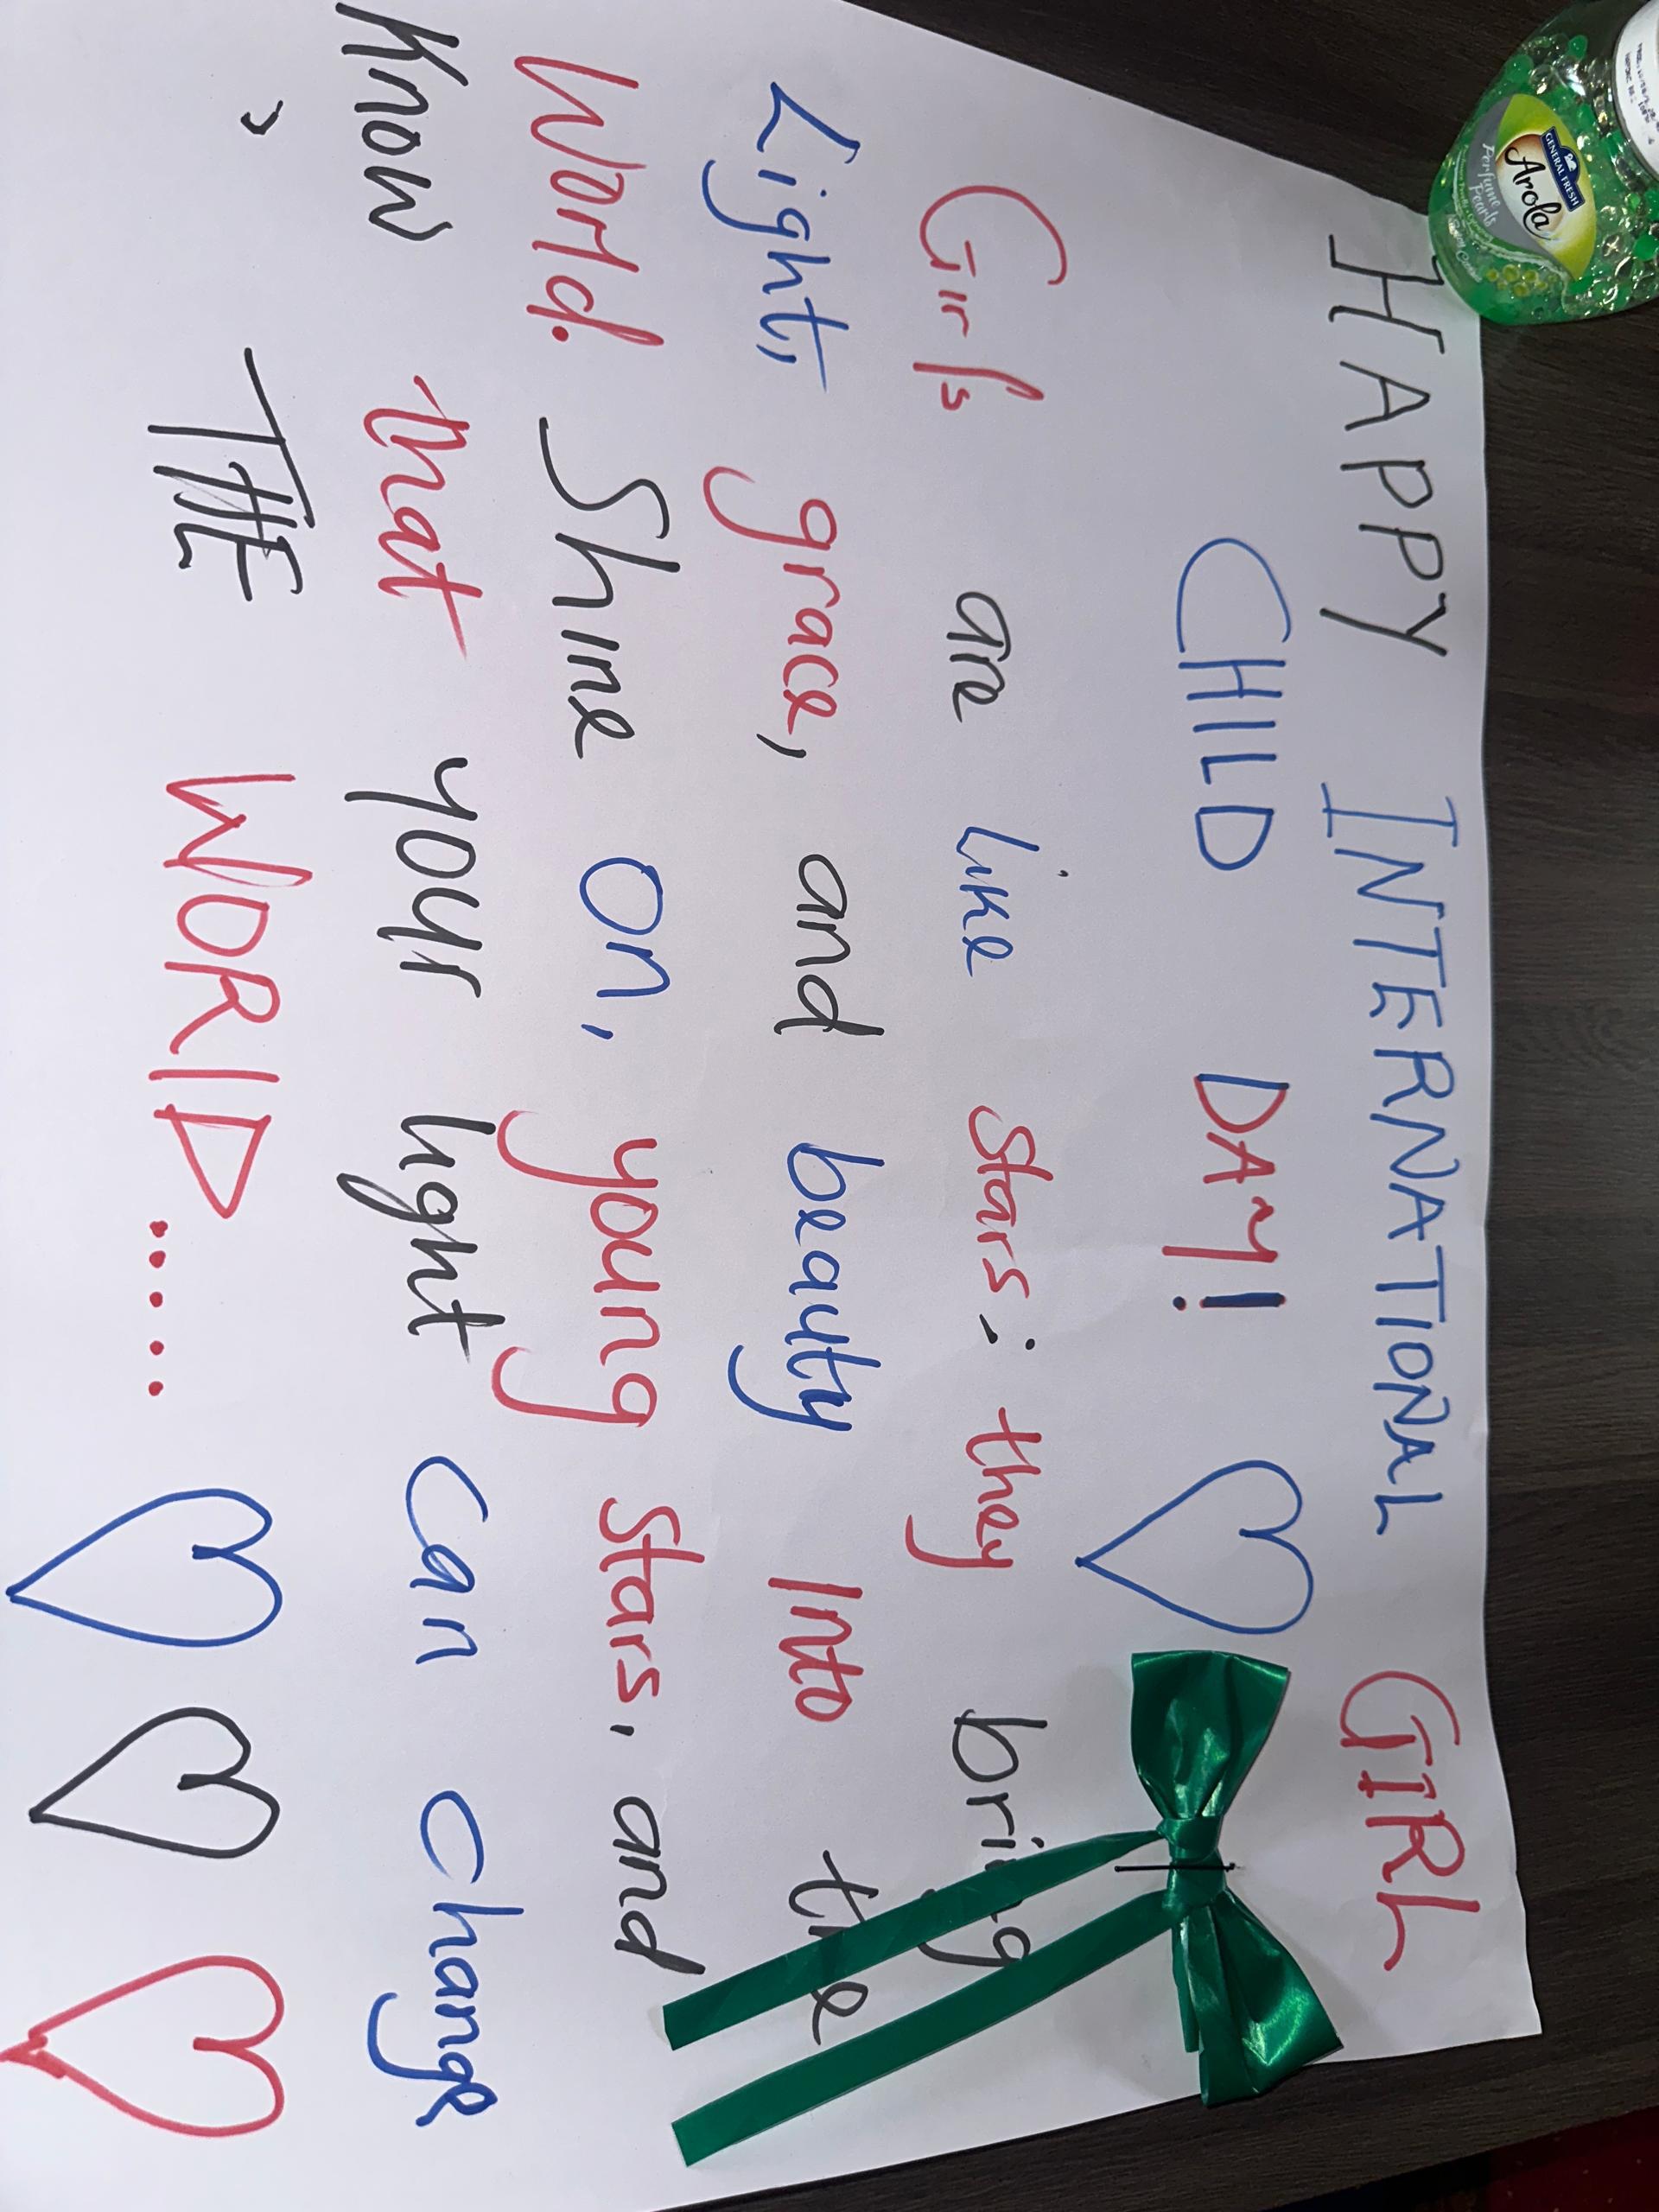 HAPPY INTERNATIONAL GIRL
CHILD DAY!
Girls are like stars: they bring
Light, grace, and beauty Into the
World. Shine on, young stars, and
Know that your light can change
, THE WORLD.....
GENERAL FRESH
Arola
Perfume Pearls